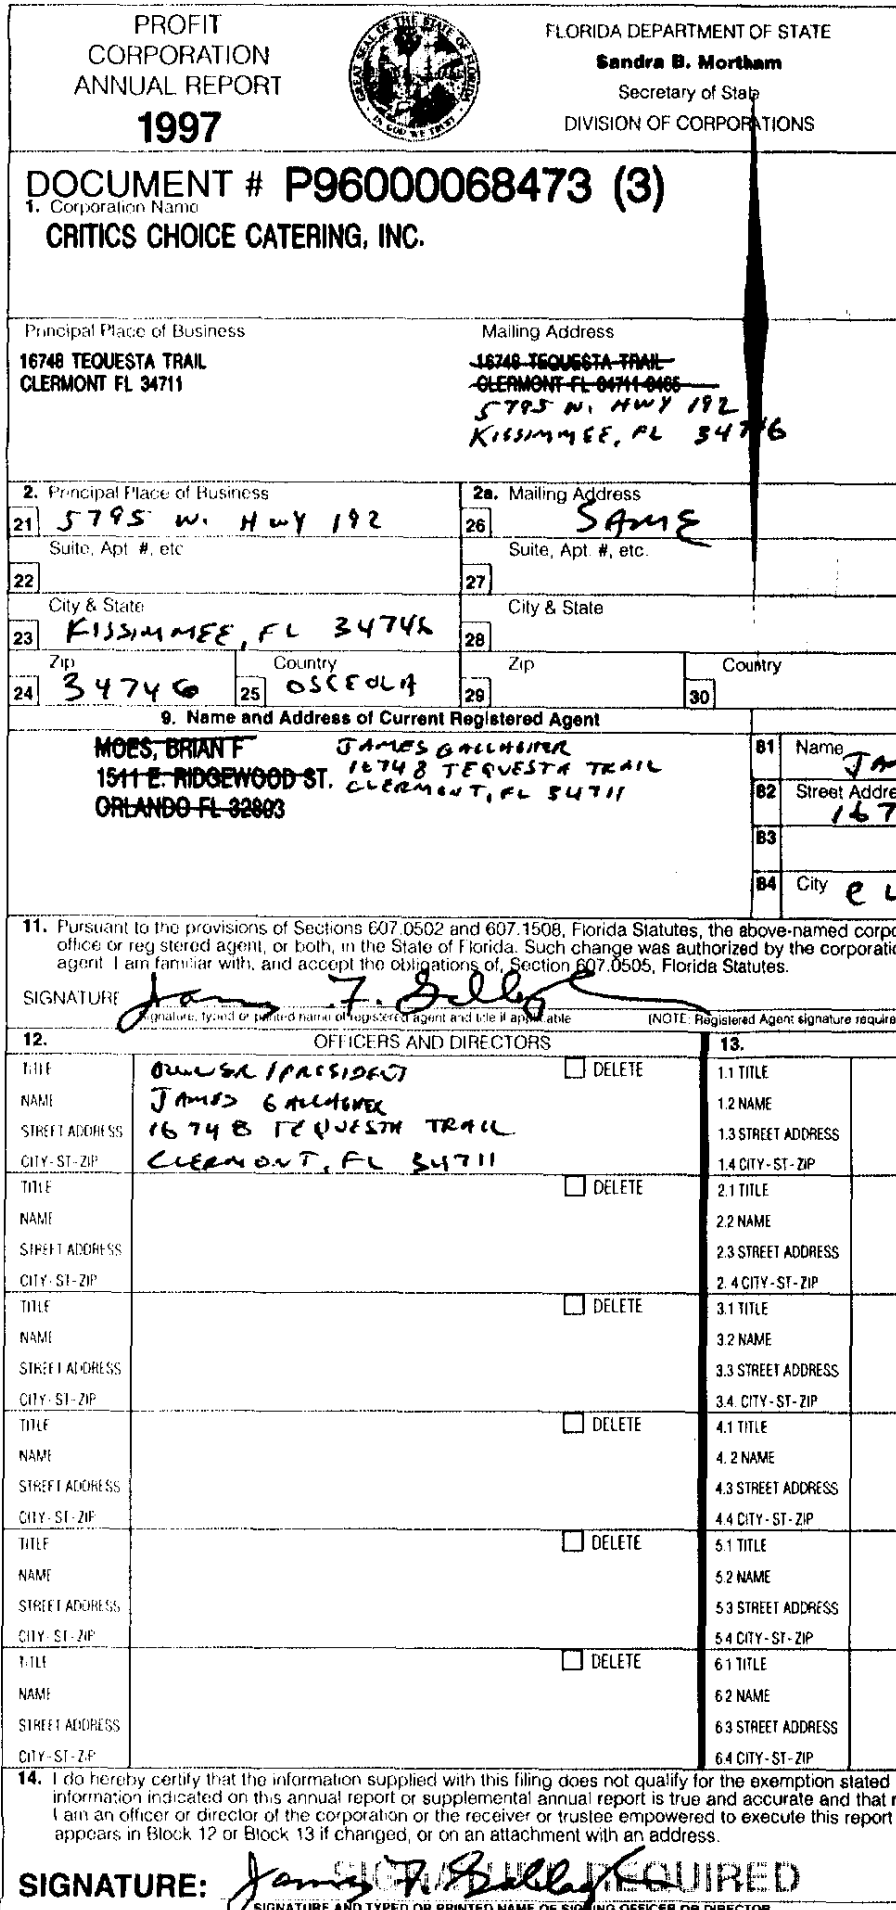 PROFIT
CORPORATION
ANNUAL REPORT
1997
GREAT SEAL OF THE STATE OF FLORIDA
IN GOD WE TRUST
FLORIDA DEPARTMENT OF STATE
Sandra B. Mortham
Secretary of State
DIVISION OF CORPORATIONS
DOCUMENT # P96000068473 (3)
1. Corporation Name
CRITICS CHOICE CATERING, INC.
Principal Place of Business
16748 TEQUESTA TRAIL
CLERMONT FL 34711
Mailing Address
16748 TEQUESTA TRAIL
CLERMONT FL 34711-8465
5795 W. HWY 192
KISSIMMEE, FL 34746
2. Principal Place of Business
21 5795 W. HWY 192
2a. Mailing Address
26 SAME
Suite, Apt #, etc
22
Suite, Apt. #, etc.
27
City & State
23 KISSIMMEE, FL 34746
City & State
28
Zip
24 34746
Country
25 OSCEOLA
Zip
29
Country
30
9. Name and Address of Current Registered Agent
MOES, BRIAN F
1511 E. RIDGEWOOD ST.
ORLANDO FL 32803
JAMES GALLAGHER
16748 TEQUESTA TRAIL
CLERMONT, FL 34711
81 Name JAM
82 Street Addre
167
83
84 City CL
11. Pursuant to the provisions of Sections 607.0502 and 607.1508, Florida Statutes, the above-named corpo
office or reg stered agent, or both, in the State of Florida. Such change was authorized by the corporatio
agent I am familiar with, and accept the obligations of, Section 607.0505, Florida Statutes.
SIGNATURE James F. Gallagher
Signature, typed or printed name of registered agent and title if applicable
(NOTE: Registered Agent signature require
12. OFFICERS AND DIRECTORS
13.
TITLE OWNER / PRESIDENT DELETE
NAME JAMES GALLAGHER
STREET ADDRESS 16748 TEQUESTA TRAIL
CITY-ST-ZIP CLERMONT, FL 34711
1.1 TITLE
1.2 NAME
1.3 STREET ADDRESS
1.4 CITY-ST-ZIP
TITLE DELETE
NAME
STREET ADDRESS
CITY-ST-ZIP
2.1 TITLE
2.2 NAME
2.3 STREET ADDRESS
2.4 CITY-ST-ZIP
TITLE DELETE
NAME
STREET ADDRESS
CITY-ST-ZIP
3.1 TITLE
3.2 NAME
3.3 STREET ADDRESS
3.4. CITY-ST-ZIP
TITLE DELETE
NAME
STREET ADDRESS
CITY-ST-ZIP
4.1 TITLE
4.2 NAME
4.3 STREET ADDRESS
4.4 CITY-ST-ZIP
TITLE DELETE
NAME
STREET ADDRESS
CITY-ST-ZIP
5.1 TITLE
5.2 NAME
5.3 STREET ADDRESS
5.4 CITY-ST-ZIP
TITLE DELETE
NAME
STREET ADDRESS
CITY-ST-ZIP
6.1 TITLE
6.2 NAME
6.3 STREET ADDRESS
6.4 CITY-ST-ZIP
14. I do hereby certify that the information supplied with this filing does not qualify for the exemption stated
information indicated on this annual report or supplemental annual report is true and accurate and that m
I am an officer or director of the corporation or the receiver or trustee empowered to execute this report
appears in Block 12 or Block 13 if changed, or on an attachment with an address.
SIGNATURE: James F. Gallagher
SIGNATURE REQUIRED
SIGNATURE AND TYPED OR PRINTED NAME OF SIGNING OFFICER OR DIRECTOR